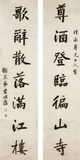 尊酒登臨徧山寺
歌辭散落滿江樓